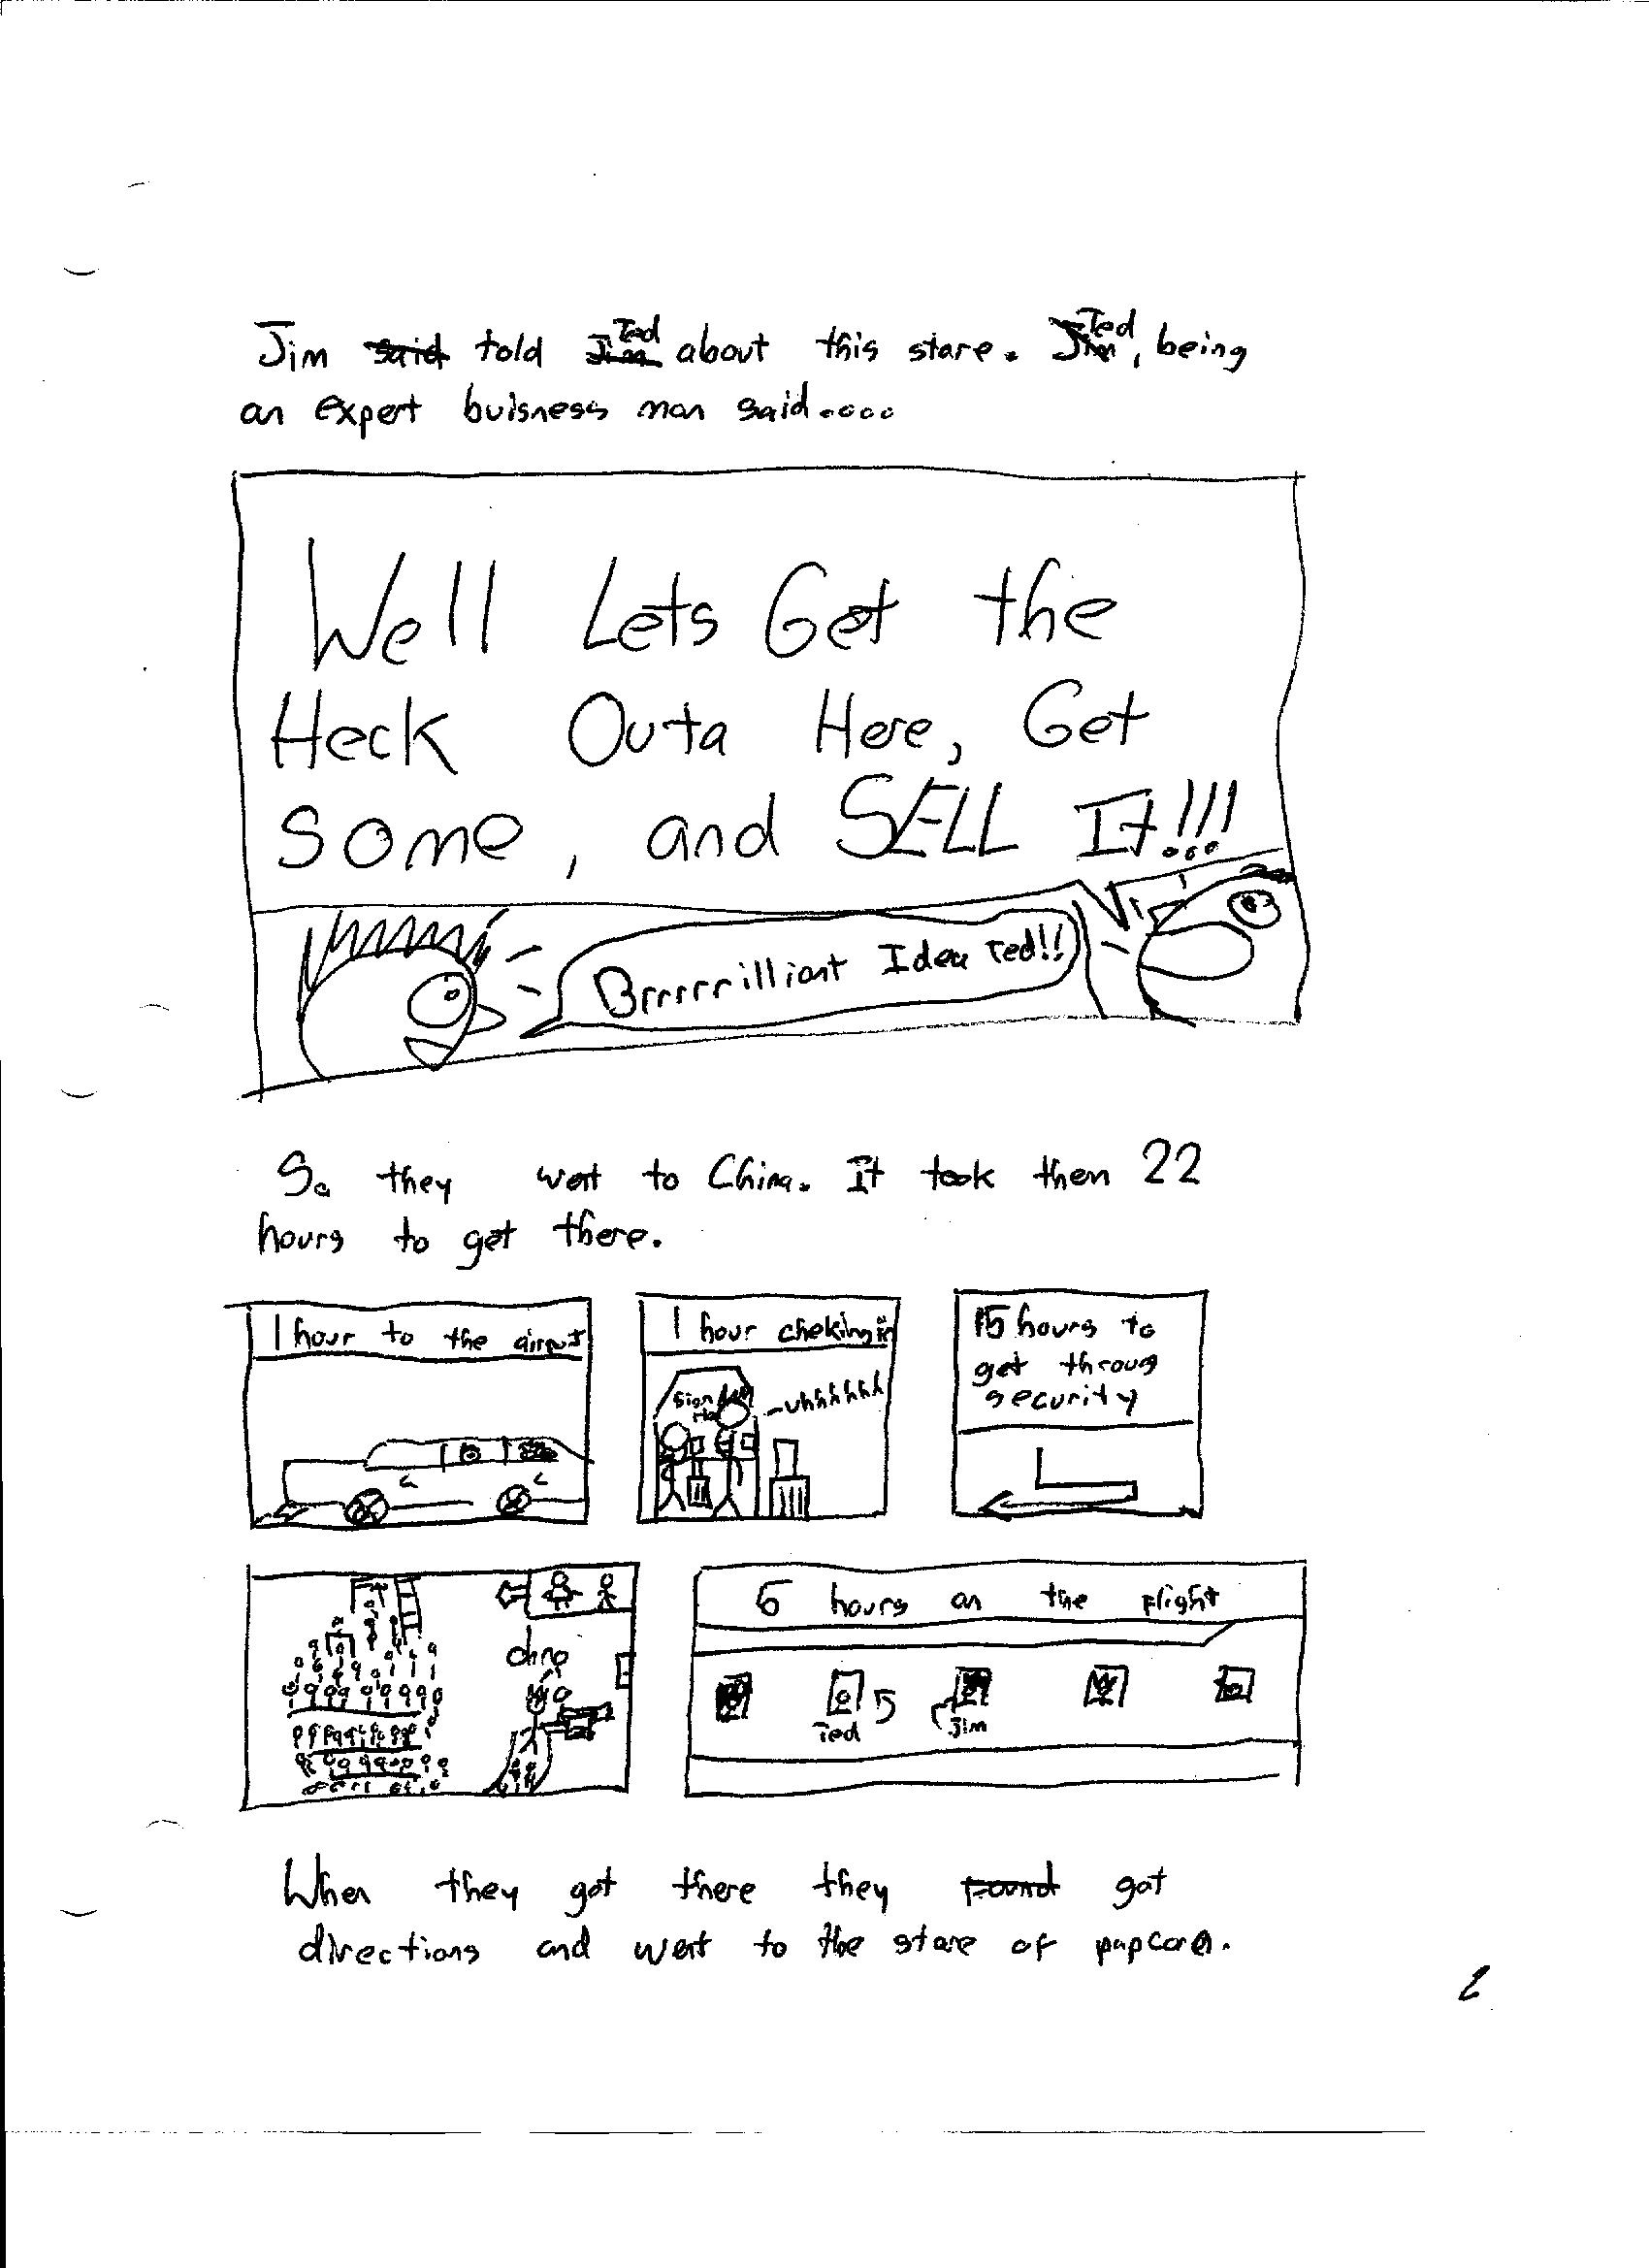 Jim said told Jim Ted about this store. Jim Ted, being
an expert buisness man said....
Well Lets Get the
Heck Outa Here, Get
Some, and SELL It!!!
Brrrrrilliant Idea Ted!!
So they went to China. It took them 22
hours to get there.
1 hour to the airport
1 hour cheking in
Sign
uhhhhhh
15 hours to
get throug
security
6 hours on the flight
Ted
Jim
When they got there they found got
directions and went to the store of popcorn.
2